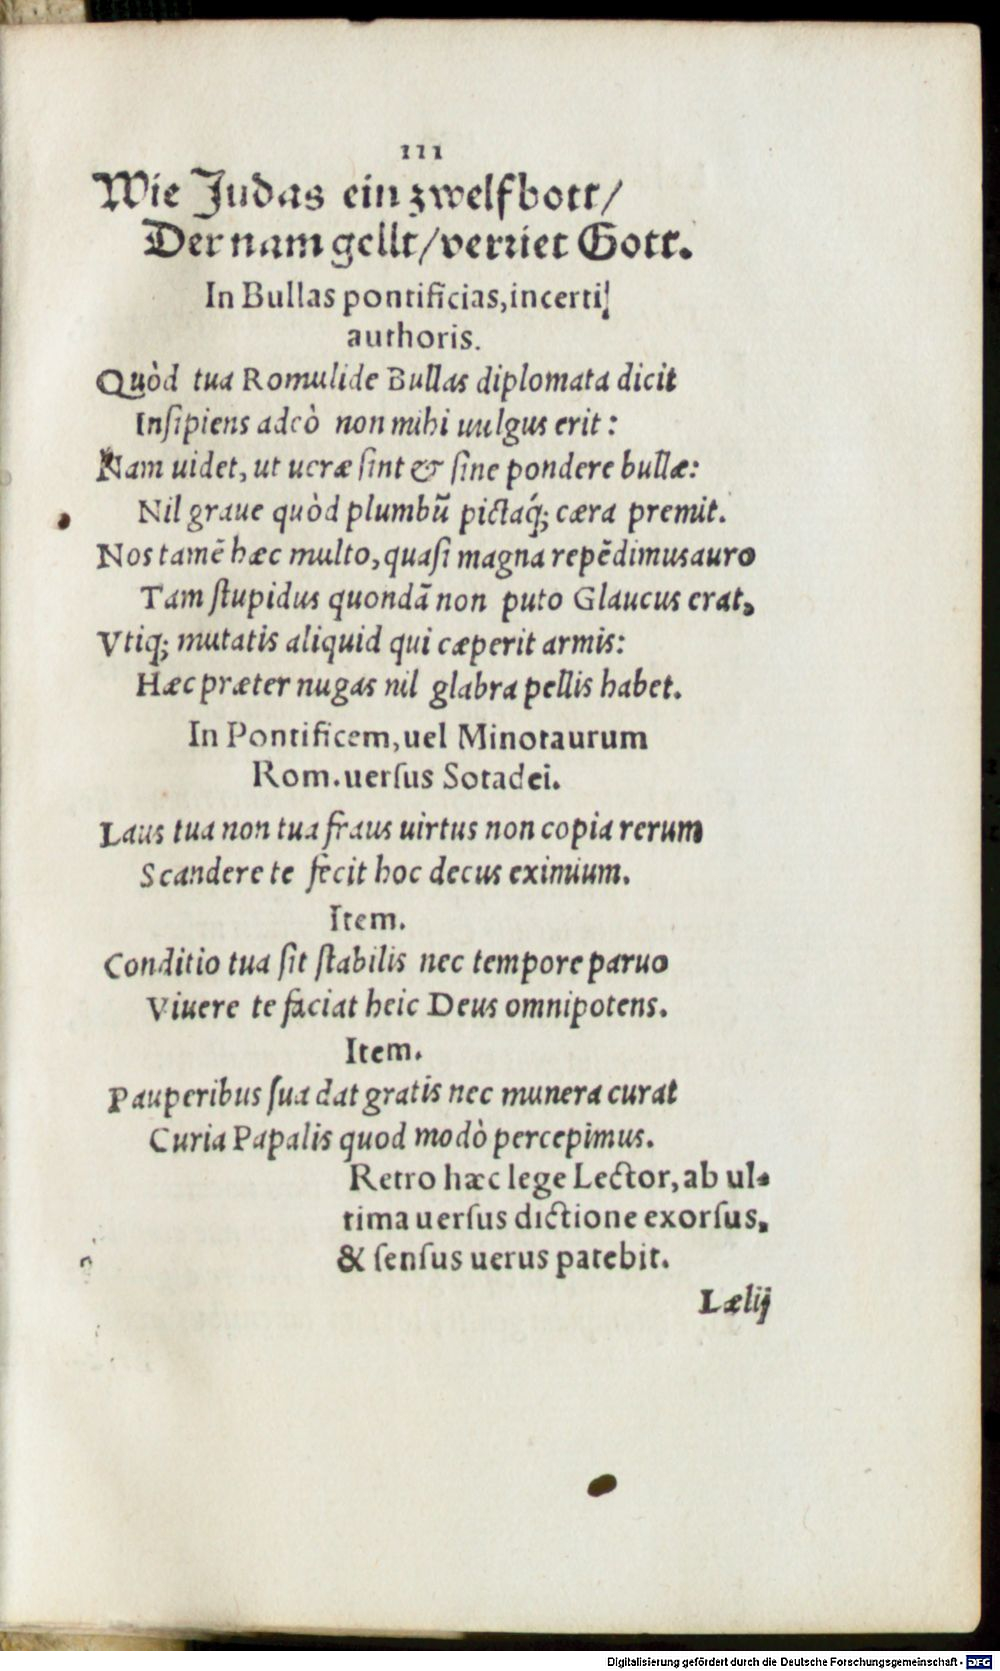 111
Wie Judas ein zwelfbott/
Der nam gellt/verriet Gott.
In Bullas pontificias,incerti
authoris.
Quòd tua Romulide Bullas diplomata dicit
Inſipiens adeò non mihi uulgus erit:
Nam uidet, ut ueræ ſint & ſine pondere bullæ:
Nil graue quòd plumbũ pictaq́; cæra premit.
Nos tamẽ hæc multo, quaſi magna repẽdimus auro
Tam ſtupidus quondã non puto Glaucus erat,
Vtiq; mutatis aliquid qui cæperit armis:
Hæc præter nugas nil glabra pellis habet.
In Pontificem,uel Minotaurum
Rom.uerſus Sotadei.
Laus tua non tua fraus uirtus non copia rerum
Scandere te fecit hoc decus eximium.
Item.
Conditio tua ſit ſtabilis nec tempore paruo
Viuere te faciat heic Deus omnipotens.
Item.
Pauperibus ſua dat gratis nec munera curat
Curia Papalis quod modò percepimus.
Retro hæc lege Lector, ab ul-
tima uerſus dictione exorſus,
& ſenſus uerus patebit.
Lælij
Digitalisierung gefördert durch die Deutsche Forschungsgemeinschaft - DFG